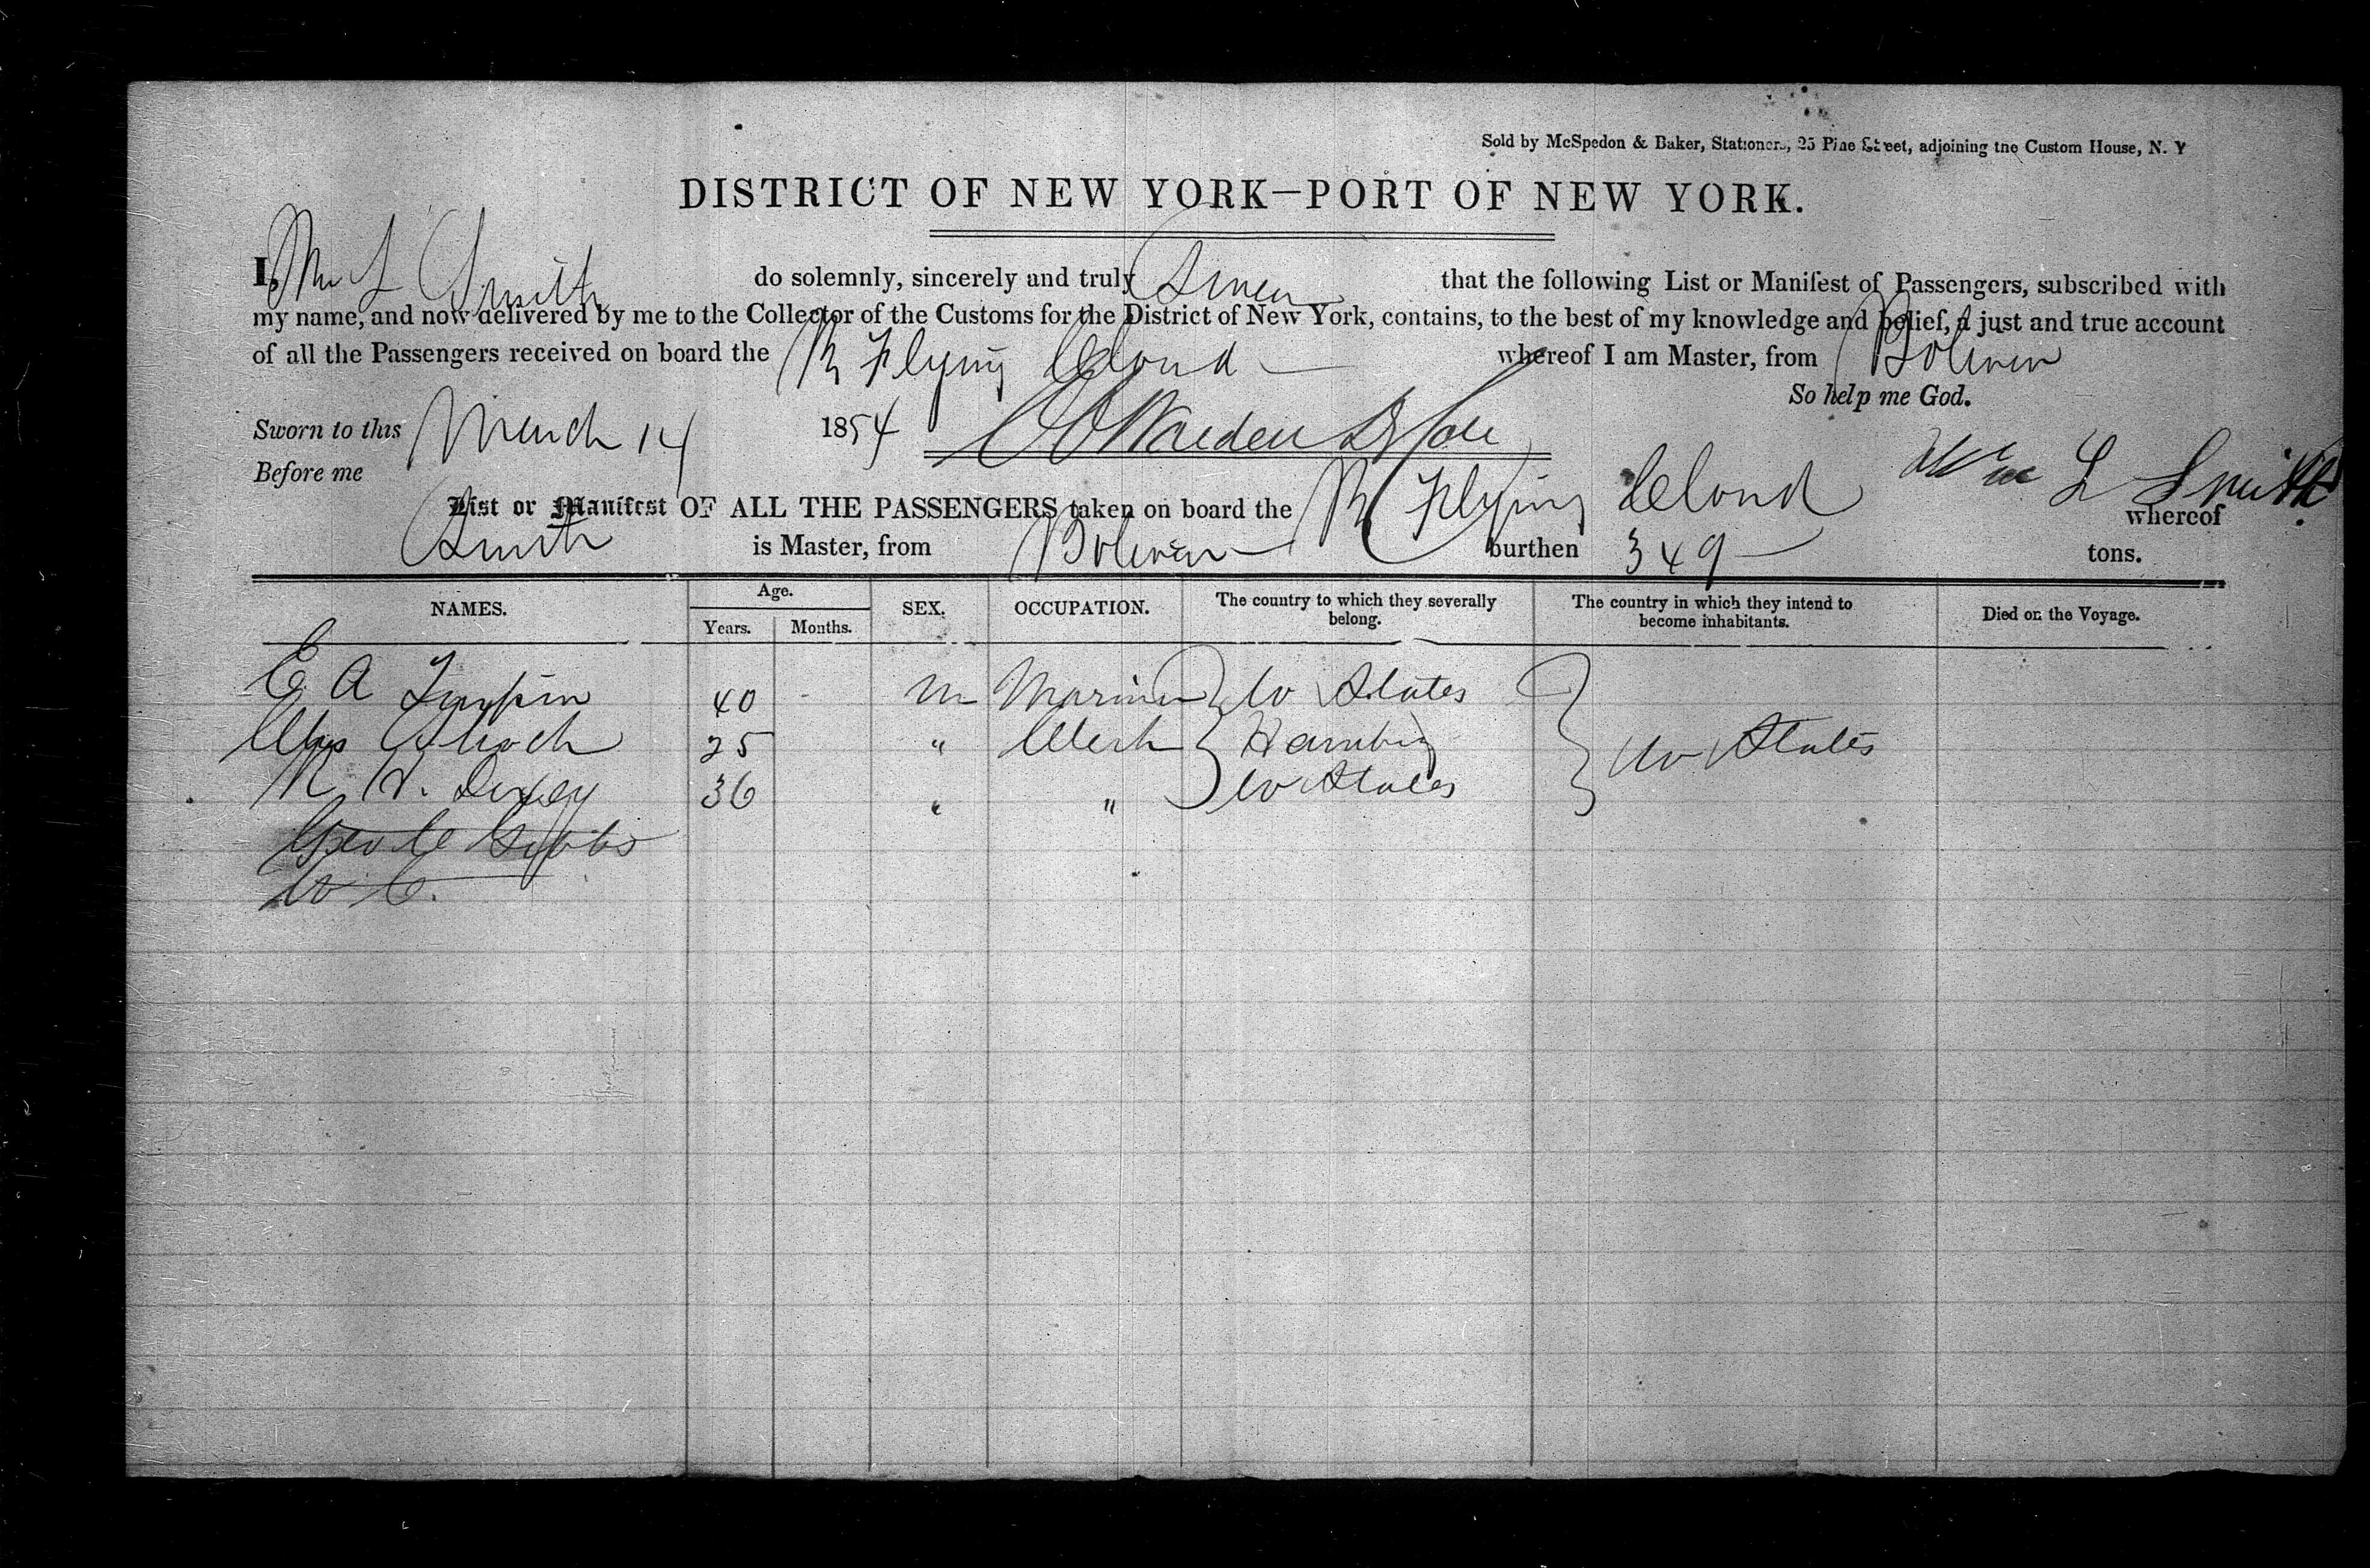 Sold by McSpedon & Baker, Stationers, 25 Pine Street, adjoining the Custom House, N. Y
DISTRICT OF NEW YORK—PORT OF NEW YORK.
I, Wm L Smith do solemnly, sincerely and truly Swear that the following List or Manifest of Passengers, subscribed with
my name, and now delivered by me to the Collector of the Customs for the District of New York, contains, to the best of my knowledge and belief, a just and true account
of all the Passengers received on board the Flying Cloud whereof I am Master, from Bolivar
So help me God.
Sworn to this March 14 1854
Before me
Wm L Smith
List or Manifest OF ALL THE PASSENGERS taken on board the Flying Cloud whereof
Smith is Master, from Bolivar burthen 349 tons.
NAMES. Age. Years. Months. SEX. OCCUPATION. The country to which they severally belong. The country in which they intend to become inhabitants. Died on the Voyage.
E A 40 M Mariner U States
Chs 25 " Clerk Hamburg U States
R H. Dixey 36 " " U States
Geo C Gibbs
W C.